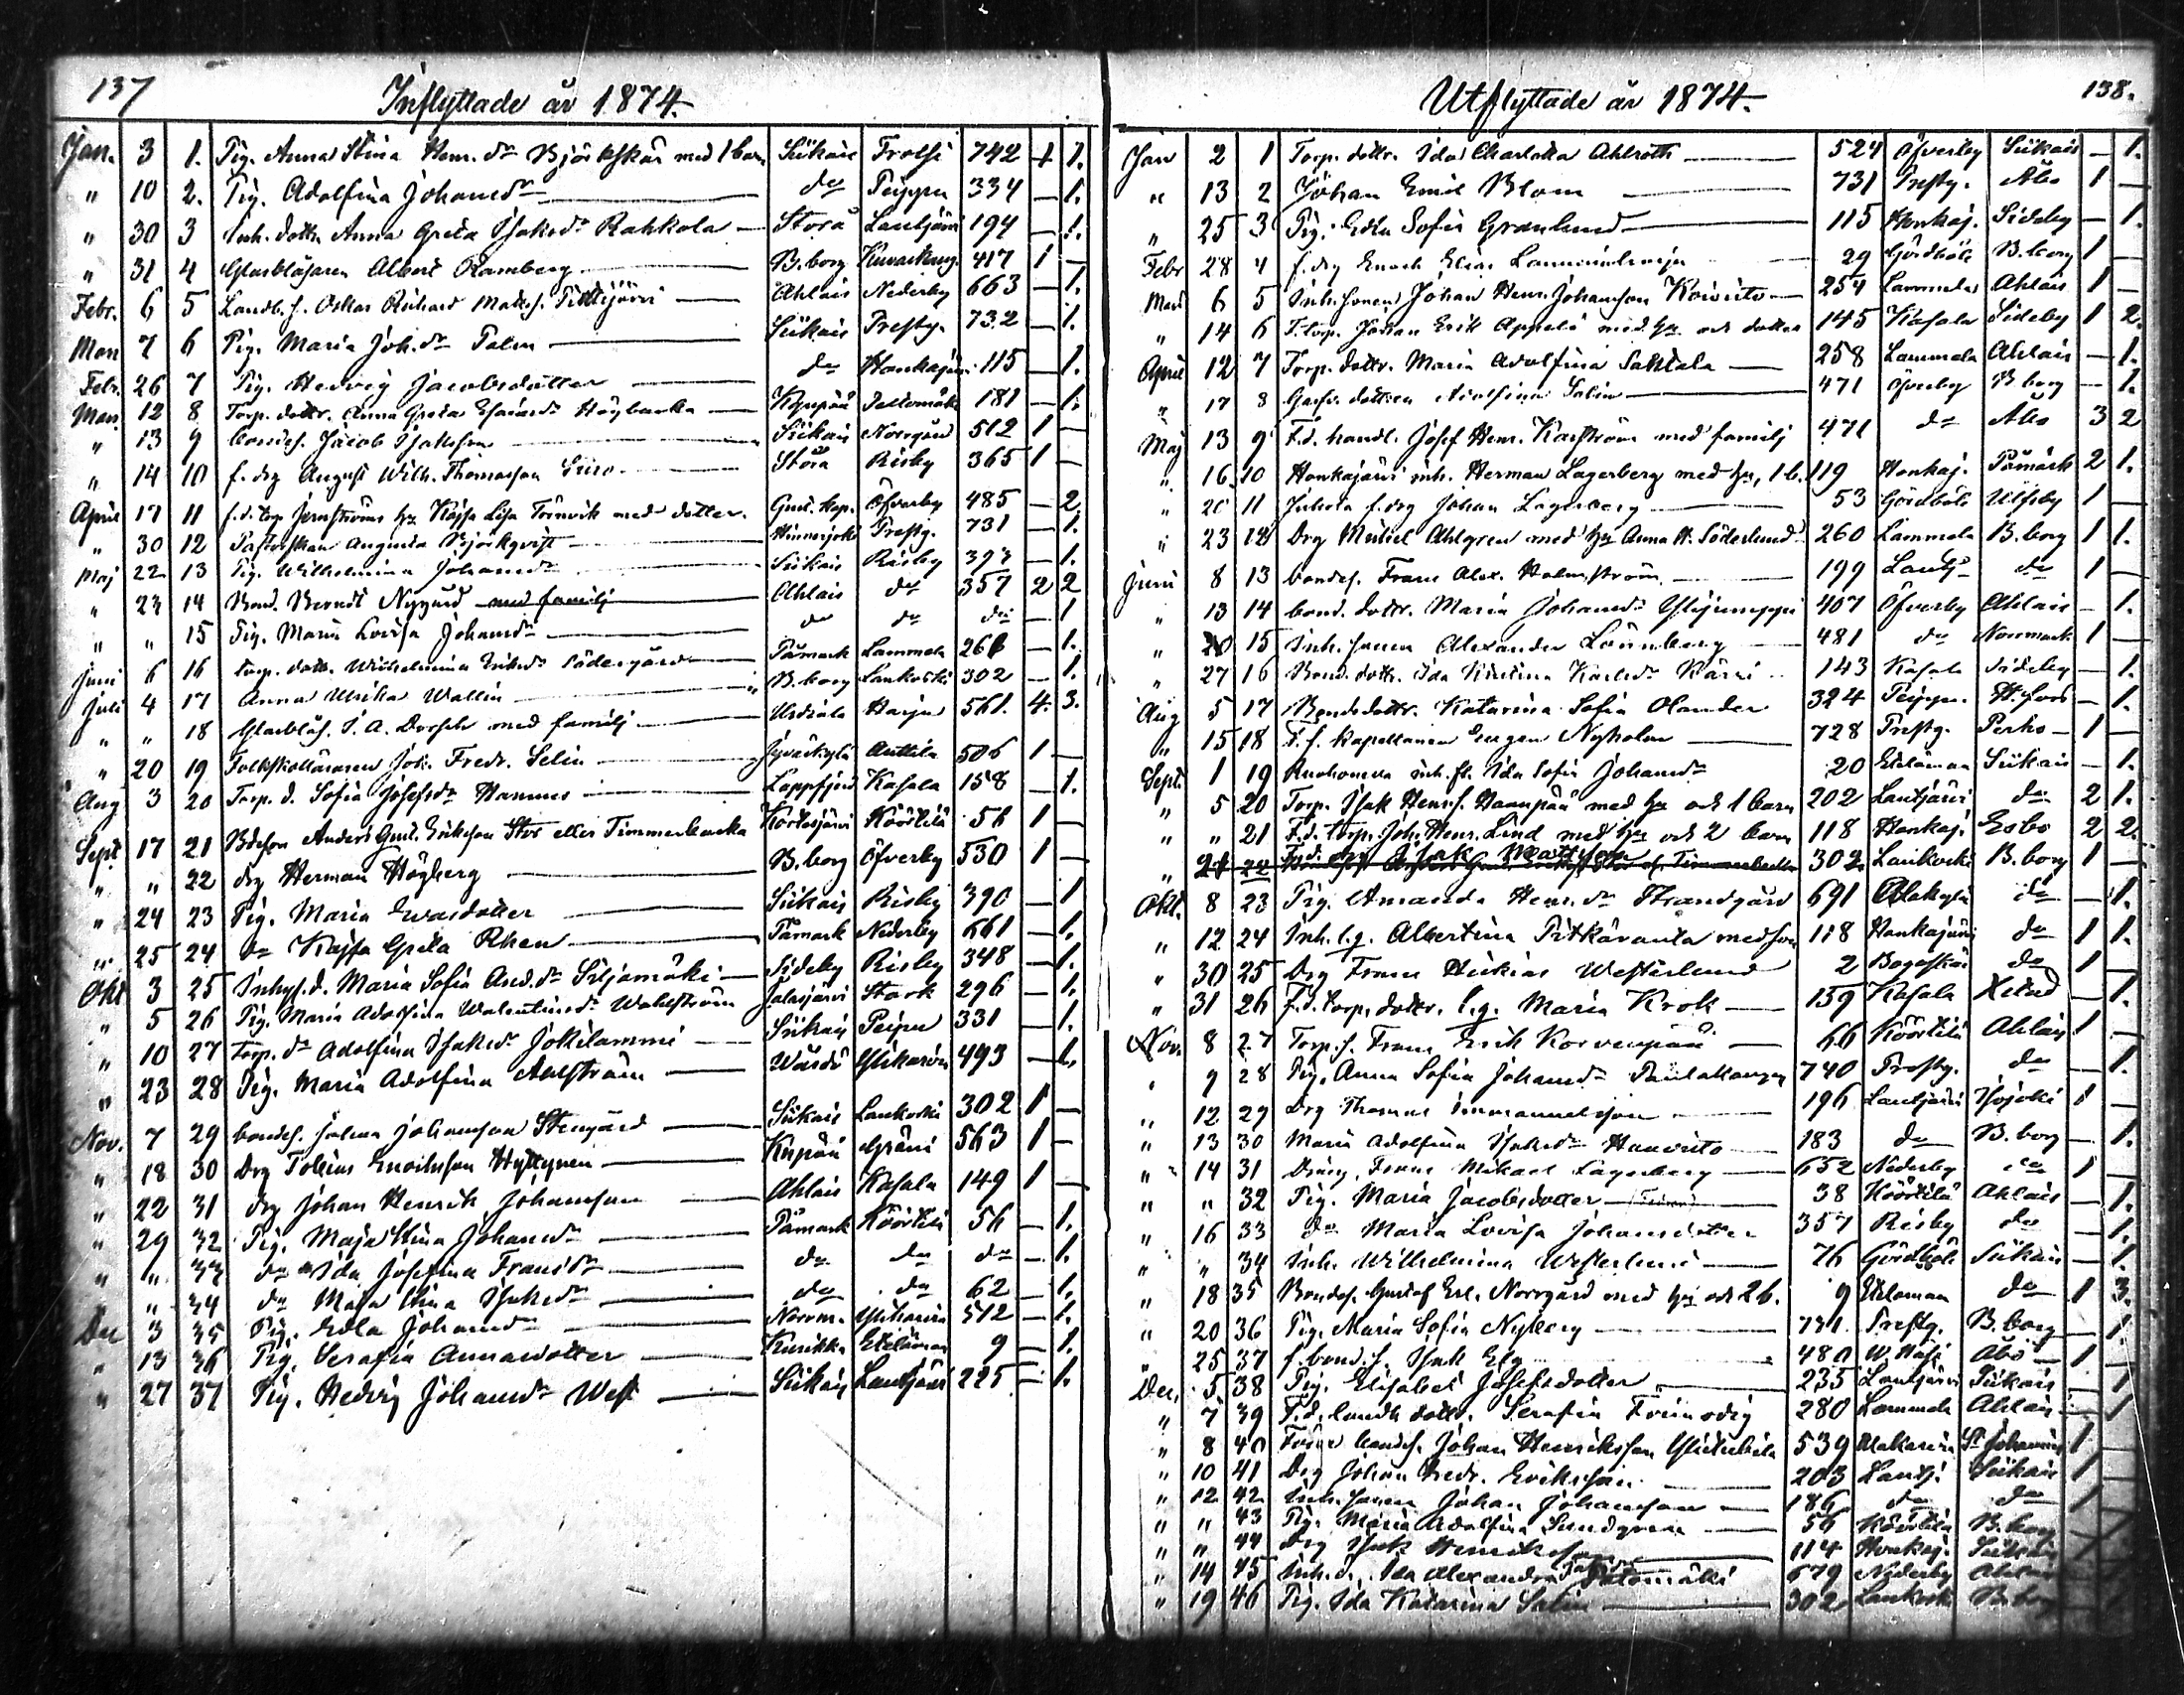 137
Inflyttade år 1874.
Jan. 3 1. Pig. Anna Stina Henr. dr Björkskär med 1 barn Siikais Trolssi 742 1 1.
" 10 2. Pig. Adolfina Johansdr do Peippu 334 — 1.
" 30 3 Inh. dottr. Anna Greta Isaksdr Rahkola Storå Lautjärvi 194 — 1.
" 31 4 Glasblåsaren Albert Ramberg B.borg 417 1 —
Febr. 6 5 Landb. s. Oskar Richard Matts. Ahlais Nederby 663 — 1.
Mars 7 6 Pig. Maria Joh. dr Palm Siikais Prestg. 732 — 1.
Febr. 26 7 Pig. Hedvig Jacobsdotter do Honkajärvi 115 — 1.
Mars 12 8 Torp. dottr. Anna Greta Esaiasdr Högbacka 181 — 1.
" 13 9 bondes. Jacob Isaksson Siikais Norrgård 512 1 —
" 14 10 f. drg August Wilh. Thomasson Storå Risby 365 1 —
April 17 11 f.d. torp. hu Kajsa Lisa Törnvik med dotter. Öfverby 485 — 2
" 30 12 Augusta Björkqvist Prestg. 731 — 1.
Maj 22 13 Pig. Wilhelmina Johansdr Siikais Risby 393 — 1.
" 23 14 Bond. Berndt Nygård med familj Ahlais do 357 2 2
" " 15 Pig. Maria Lovisa Johansdr do do do — 1
Juni 6 16 torp. dottr. Wilhelmina Eriksdr Södergård Påmark Lammela 266 — 1.
Juli 4 17 Anna Ulrika Wallin B.borg Lankoski 302 — 1.
" " 18 Glasblås. med familj Urdiala Harju 561. 4. 3.
" 20 19 Folkskolläraren Joh. Fredr. Selin Jyväskylä Anttila 506 1 —
Aug 3 20 Torp. d. Sofia Josefsdr Hannus Lappfjerd Kasala 158 — 1.
Sept 17 21 Bdeson Anders Gust. Eriksson Stor eller Timmerbacka Kortesjärvi Köörtilä 56 1 —
" " 22 drg Herman Högberg B.borg Öfverby 530 1 —
" 24 23 Pig. Maria Evasdotter Siikais Risby 390 — 1
" 25 24 do Kajsa Greta Rhen Påmark Nederby 661 — 1.
Okt 3 25 Inhys. d. Maria Sofia And. dr Siljamäki Sideby Risby 348 — 1.
" 5 26 Pig. Maria Adolfina Walentinsdr Wahlström Jalasjärvi Stork 296 — 1.
" 10 27 Torp. dr Adolfina Isaksdr Jokilammi Siikais Peipu 331 — 1.
" 23 28 Pig. Maria Adolfina Ahlström 493 — 1.
Nov. 7 29 bondes. Johan Johansson Stengård Siikais Lankoski 302 1 —
" 18 30 Drg Tobias Enoksson Hyttynen 563 1 —
" 22 31 drg Johan Henrik Johansson Ahlais Kasala 149 1 —
" 29 32 Pig. Maja Stina Johansdr Påmark Köörtilä 56 — 1.
" " 33 do Ida Josefina Fransdr do do do — 1.
" " 34 do Maja Stina Isaksdr do do 62 — 1.
Dec 3 35 Pig. Edla Johansdr Norrm. 512 — 1.
" 13 36 Pig. Serafia Annasdotter Kurikka 9 — 1.
" 27 37 Pig. Hedvig Johansdr West Siikais Lautjärvi 225 — 1.
Utflyttade år 1874.
138.
Jan 2 1 Torp. dottr. Ida Charlotta Ahlroth 524 Öfverby Siikais — 1.
" 13 2 Johan Emil Blom 731 Prestg. Åbo 1 —
" 25 3 Pig. Edla Sofia Granlund 115 Honkaj. Sideby — 1.
Febr 28 4 f. drg Enoch Elias 29 B.borg 1
Mars 6 5 Inh. sonen Johan Henr. Johansson Koivisto 254 Lammela Ahlais 1 —
" 14 6 T. torp. Johan Erik med hu och dotter 145 Kasala Sideby 1 2.
April 12 7 Torp. dottr. Maria Adolfina Sahlala 258 Lammela Ahlais — 1.
" 17 8 dottren Adolfina Salin 471 Öfverby B.borg — 1.
Maj 13 9 F.d. handl. Josef Henr. Karlström med familj 471 do Åbo 3 2
" 16 10 Honkajärvi inh. Herman Lagerberg med hu, 1 b. 119 Honkaj. Påmark 2 1.
" 20 11 f. drg Johan Lagerberg 53 Ulfsby 1 —
" 23 12 Drg Mikiel Ahlgren med hu Anna H. Söderlund 260 Lammela B.borg 1 1.
Juni 8 13 bondes. Frans Alex. Holmström 199 Lautj. do 1 —
" 13 14 bond. dottr. Maria Johansdr 407 Öfverby Ahlais — 1.
" 20 15 Inh. sonen Alexander Lönnberg 481 do Norrmark 1 —
" 27 16 Bond. dottr. Ida Kristina Karlsdr Kärri 143 Kasala Sideby — 1.
Aug 5 17 Bondedottr. Katarina Sofia Olander 324 Peippu H.fors — 1.
" 15 18 Kapellanen Eugen Nyholm 728 Prestg. Perho 1 —
Sept. 1 19 inh. fl. Ida Sofia Johansdr 20 Siikais — 1.
" 5 20 Torp. Isak Henr.s. Haanpää med hu och 1 barn 202 Lautjärvi do 2 1.
" " 21 F.d. torp. Joh. Henr. Lind med hu och 2 barn 118 Honkaj. Esbo 2 2.
" 21 22 F.d. drg Isak Mattsson 302 Lankoski B.borg 1 —
Okt. 8 23 Pig. Amanda Henr. dr Strandgård 691 do — 1.
" 12 24 Inh. l.g. Albertina Pitkäranta med son 118 Honkajärvi do 1 1.
" 30 25 Drg Frans Hiskias Westerlund 2 do 1
" 31 26 f.d. torp. dottr. l.g. Maria Krok 159 Kasala — 1.
Nov. 8 27 Torp. s. Frans Erik Korvenpää 66 Köörtilä Ahlais 1 —
" 9 28 Pig. Anna Sofia Johansdr 740 Prestg. do — 1.
" 12 29 Drg Thomas Immanuelsson 196 Lautjärvi 1 —
" 13 30 Maria Adolfina Isaksdr Haavisto 183 do B.borg — 1.
" 14 31 Dräng Frans Mikael Lagerberg 652 Nederby do 1
" " 32 Pig. Maria Jacobsdotter 38 Köörtilä Ahlais — 1.
" 16 33 do Maria Lovisa Johansdotter 357 Risby do — 1.
" " 34 Inh. Wilhelmina Westerlund 76 Siikais — 1.
" 18 35 Bondes. Gustaf Norrgård med hu och 2 b. 9 do 1 3.
" 20 36 Pig. Maria Sofia Nyberg 731 Prestg. B.borg 1.
" 25 37 f. bond. s. Isak 480 Åbo 1
Dec. 5 38 Pig. Elisabet Josefsdotter 235 Lautjärvi Siikais 1
" 7 39 F.d. landb. dottr. Serafia 280 Lammela Ahlais 1
" 8 40 bondes. Johan Henriksson 539 St Johannis 1
" 10 41 Drg Johan Fredr. Eriksson 203 Lautj. Siikais 1
" 12 42 Inh. sonen Johan Johansson 186 do do 1
" " 43 Pig. Maria Adolfina Sundgren 56 Köörtilä B.borg
" " 44 Drg Isak Henriksson 114 Honkaj. Siikais
" 14 45 Inh. d. Ida Alexandra 679 Nederby
" 19 46 Pig. Ida Katarina Salin 302 Lankoski B.borg